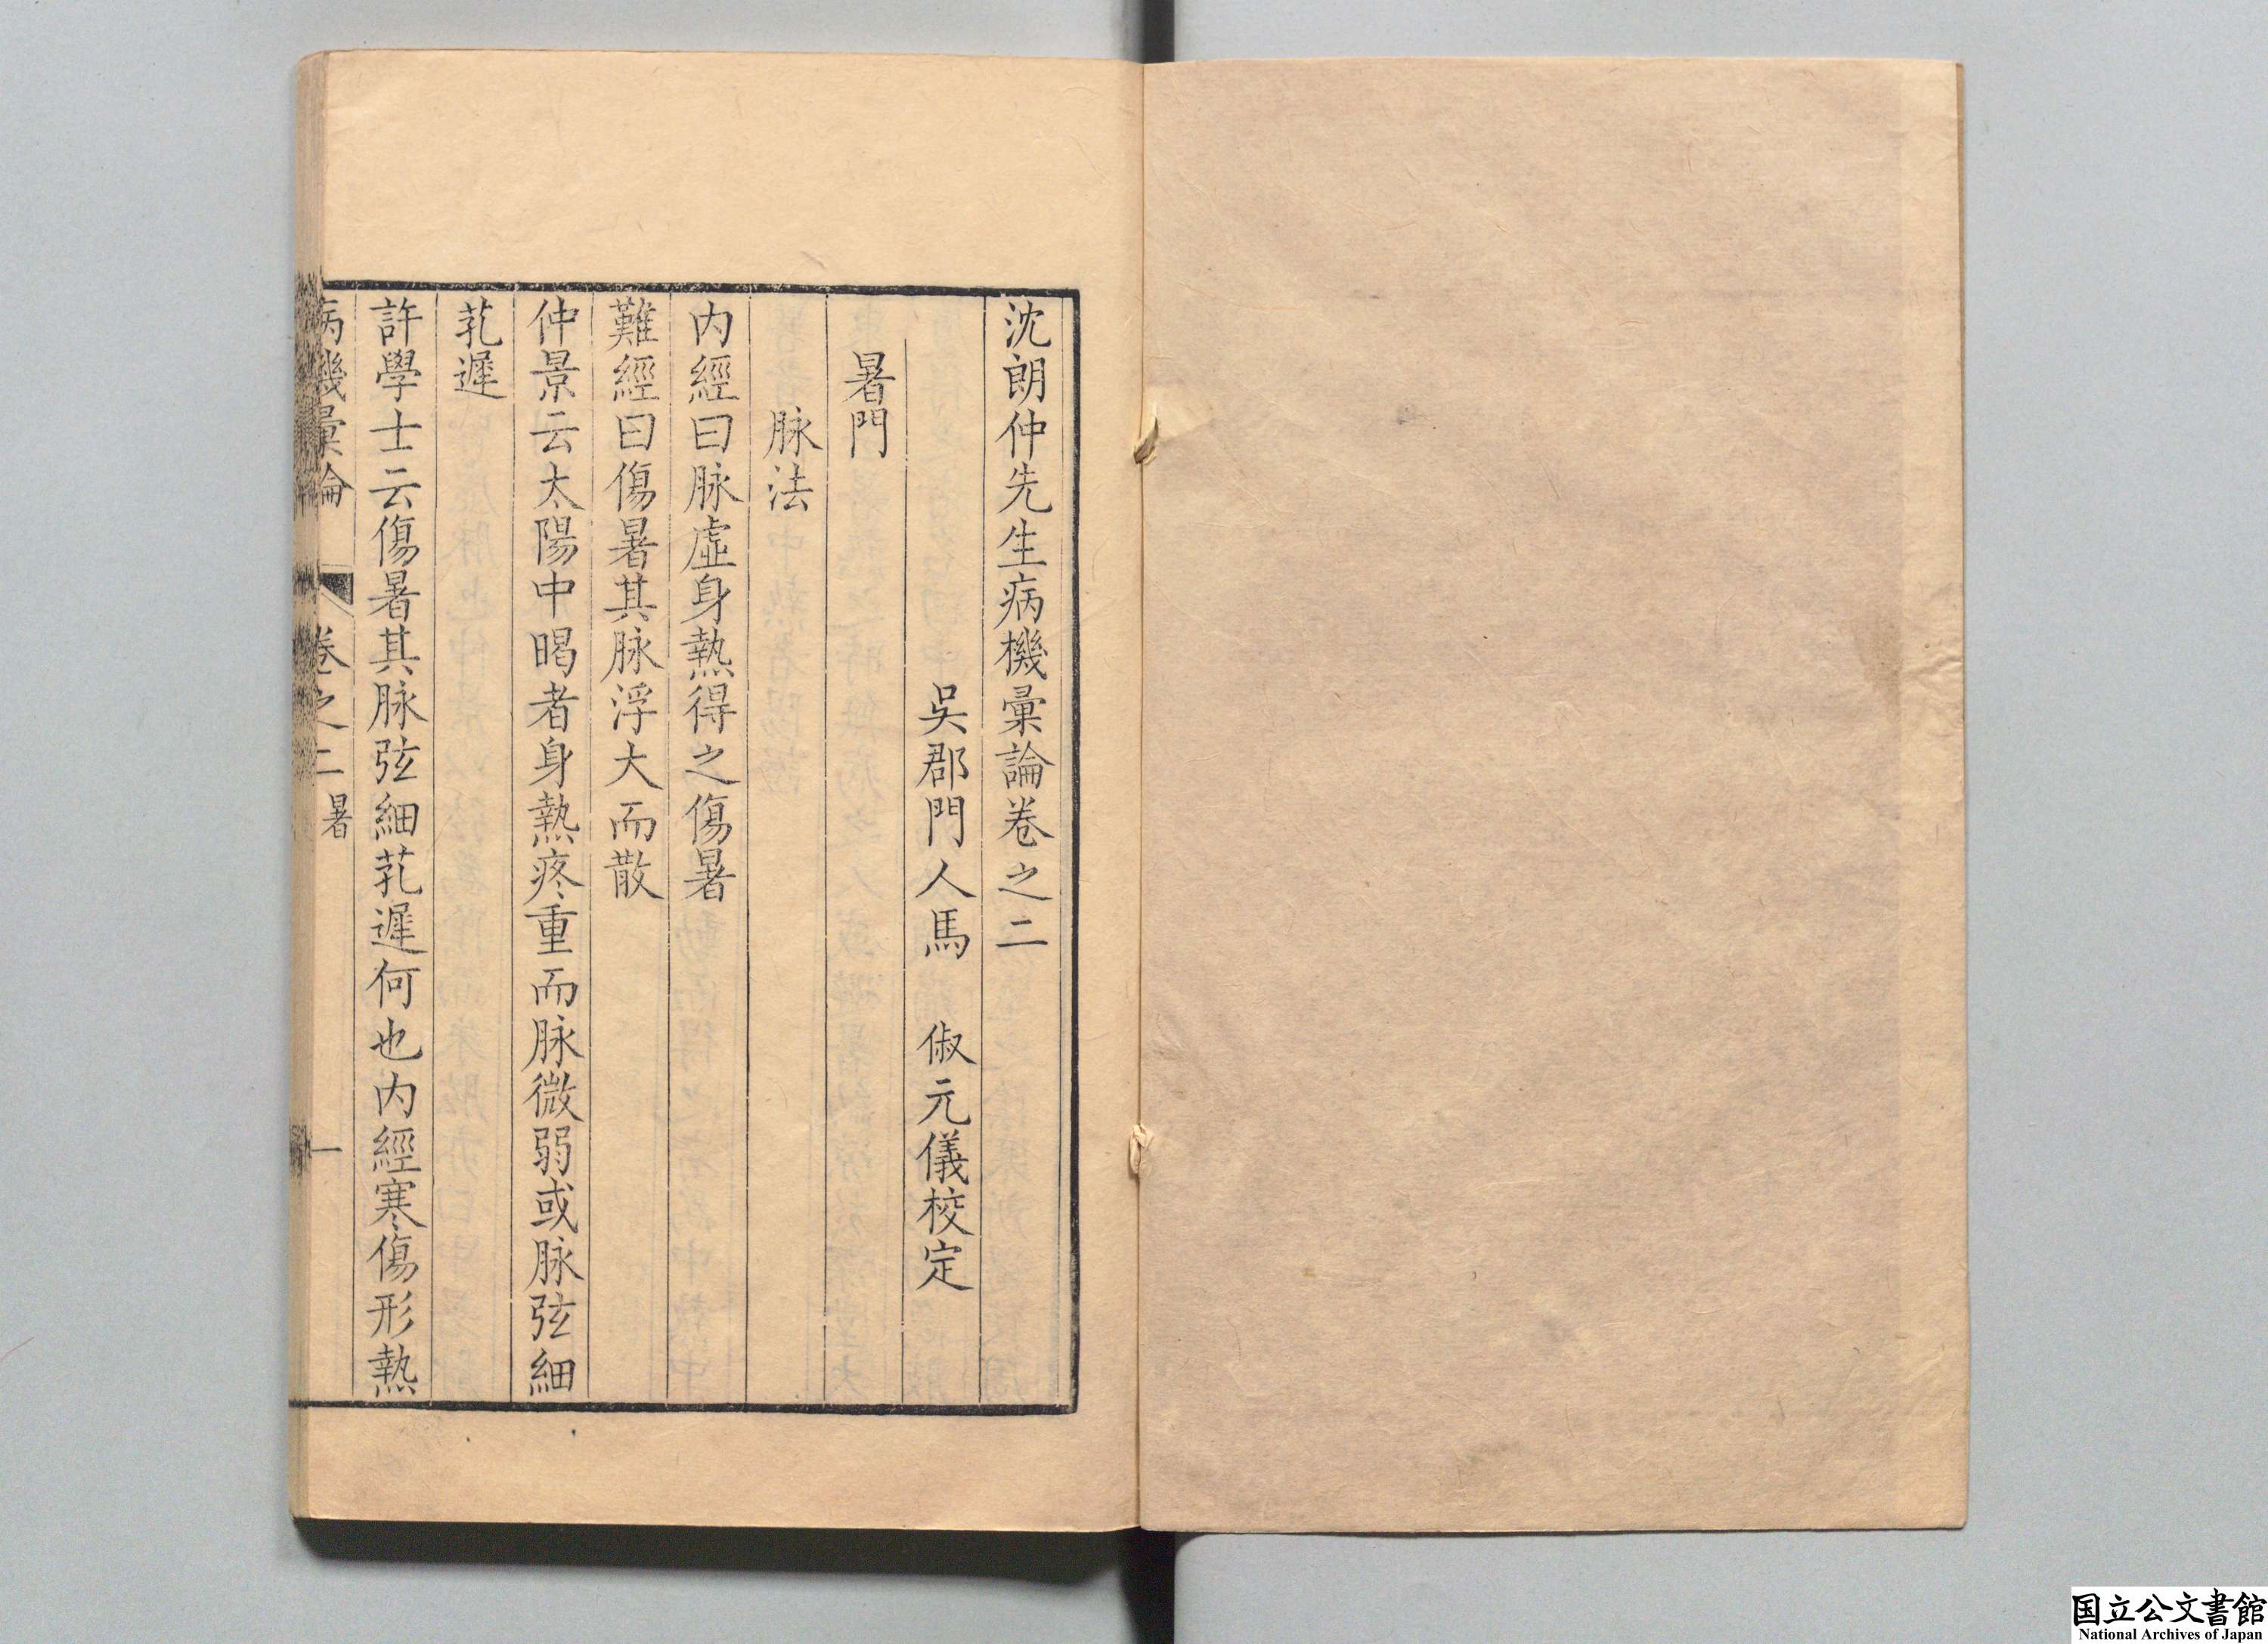 沈朗仲先生病機彙論卷之二
吳郡門人馬　俶元儀校定
暑門
脉法
內經曰脉虛身熱得之傷暑
難經曰傷暑其脉浮大而散
仲景云太陽中暍者身熱疼重而脉微弱或脉弦細
芤遲
許學士云傷暑其脉弦細芤遲何也內經寒傷形熱
病機彙論　卷之二　暑　一
国立公文書館
National Archives of Japan